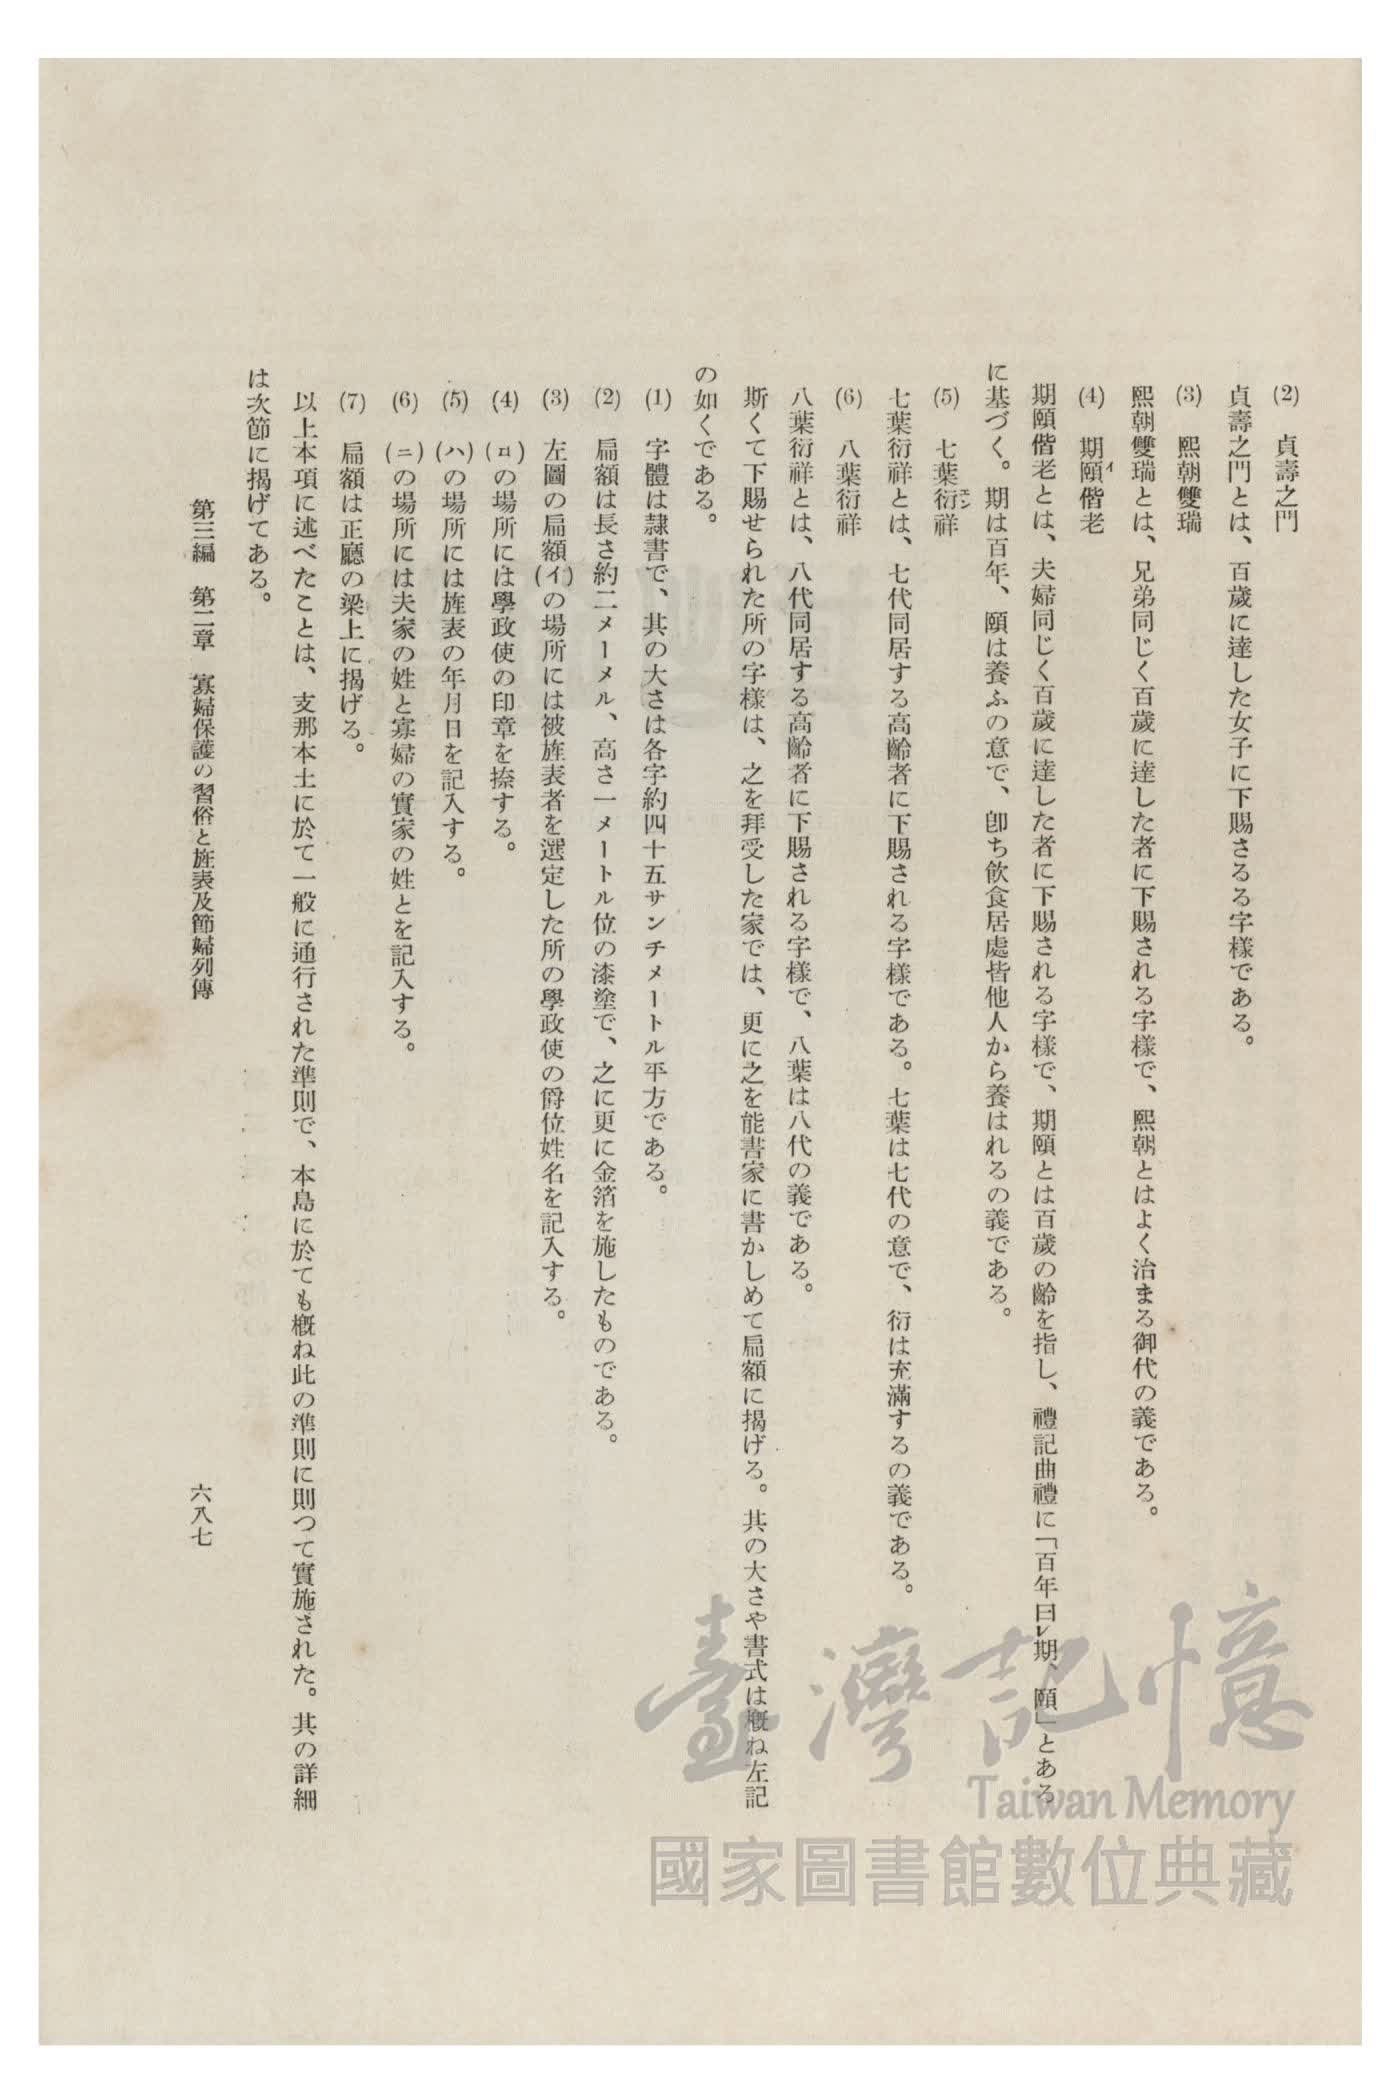 (2) 貞壽之門
貞壽之門とは、百歲に達した女子に下賜さるる字樣である。
(3) 熙朝雙瑞
熙朝雙瑞とは、兄弟同じく百歲に達した者に下賜される字樣で、熙朝とはよく治まる御代の義である。
(4) 期頤偕老
イ
期頤偕老とは、夫婦同じく百歲に達した者に下賜される字樣で、期頤とは百歲の齡を指し、禮記曲禮に「百年曰レ期、頤」とある
に基づく。期は百年、頤は養ふの意で、卽ち飮食居處皆他人から養はれるの義である。
(5) 七葉衍祥
エン
七葉衍祥とは、七代同居する高齡者に下賜される字樣である。七葉は七代の意で、衍は充滿するの義である。
(6) 八葉衍祥
八葉衍祥とは、八代同居する高齡者に下賜される字樣で、八葉は八代の義である。
斯くて下賜せられた所の字樣は、之を拜受した家では、更に之を能書家に書かしめて扁額に揭げる。其の大さや書式は槪ね左記
の如くである。
(1) 字體は隷書で、其の大さは各字約四十五サンチメートル平方である。
(2) 扁額は長さ約二メーメル、高さ一メートル位の漆塗で、之に更に金箔を施したものである。
(3) 左圖の扁額(イ)の場所には被旌表者を選定した所の學政使の爵位姓名を記入する。
(4) (ロ)の場所には學政使の印章を捺する。
(5) (ハ)の場所には旌表の年月日を記入する。
(6) (ニ)の場所には夫家の姓と寡婦の實家の姓とを記入する。
(7) 扁額は正廳の梁上に揭げる。
以上本項に述べたことは、支那本土に於て一般に通行された準則で、本島に於ても槪ね此の準則に則つて實施された。其の詳細
は次節に揭げてある。
第三編 第二章 寡婦保護の習俗と旌表及節婦列傳
六八七
臺灣記憶
Taiwan Memory
國家圖書館數位典藏